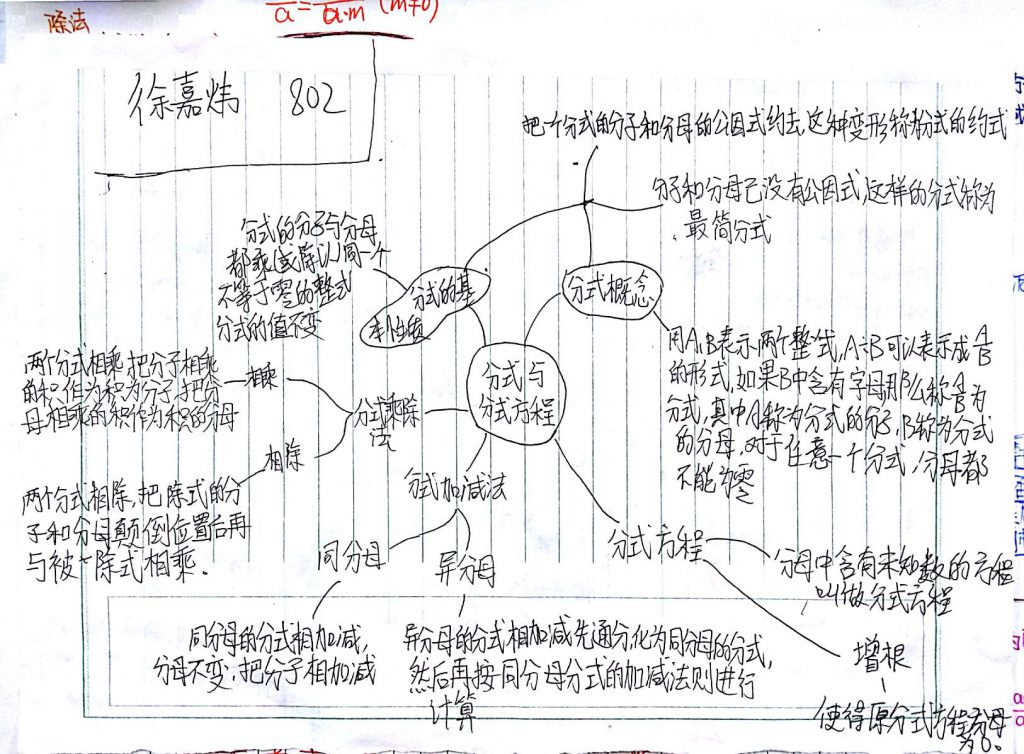 除法
a = a·m (m≠0)
徐嘉炜 802
把一个分式的分子和分母的公因式约去,这种变形称为分式的约式
分子和分母已没有公因式,这样的分式称为
最简分式
分式的分子与分母
都乘(或除以)同一个
不等于零的整式
分式的值不变
分式的基
本性质
分式概念
用A,B表示两个整式,A÷B可以表示成A/B
的形式,如果B中含有字母那么称A/B为
分式,其中A称为分式的分子,B称为分式
的分母,对于任意一个分式,分母都
不能为零
分式与
分式方程
两个分式相乘,把分子相乘
的积作为积为分子,把分
母相乘的积作为积的分母
相乘
分式乘除
法
相除
两个分式相除,把除式的分
子和分母颠倒位置后再
与被除式相乘.
分式加减法
同分母
异分母
同分母的分式相加减,
分母不变,把分子相加减
异分母的分式相加减先通分化为同分母的分式,
然后再按同分母分式的加减法则进行
计算
分式方程
分母中含有未知数的方程
叫做分式方程
增根
使得原分式方程分母
为0.